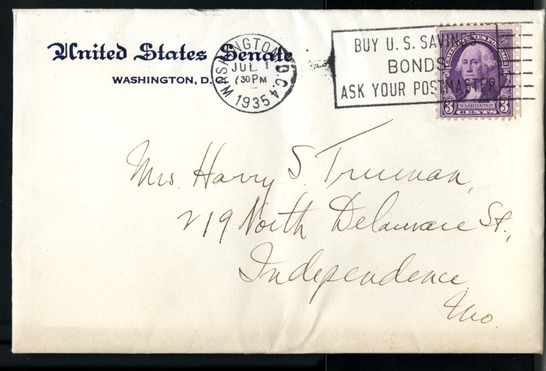 United States Senate
WASHINGTON, D.
WASHINGTON, D.C. 4
JUL 1
730 PM
1935
BUY U.S. SAVINGS
BONDS
ASK YOUR POSTMASTER
WASHINGTON
3 CENTS 3
Mrs. Harry S. Truman,
219 North Delaware St.,
Independence
Mo.